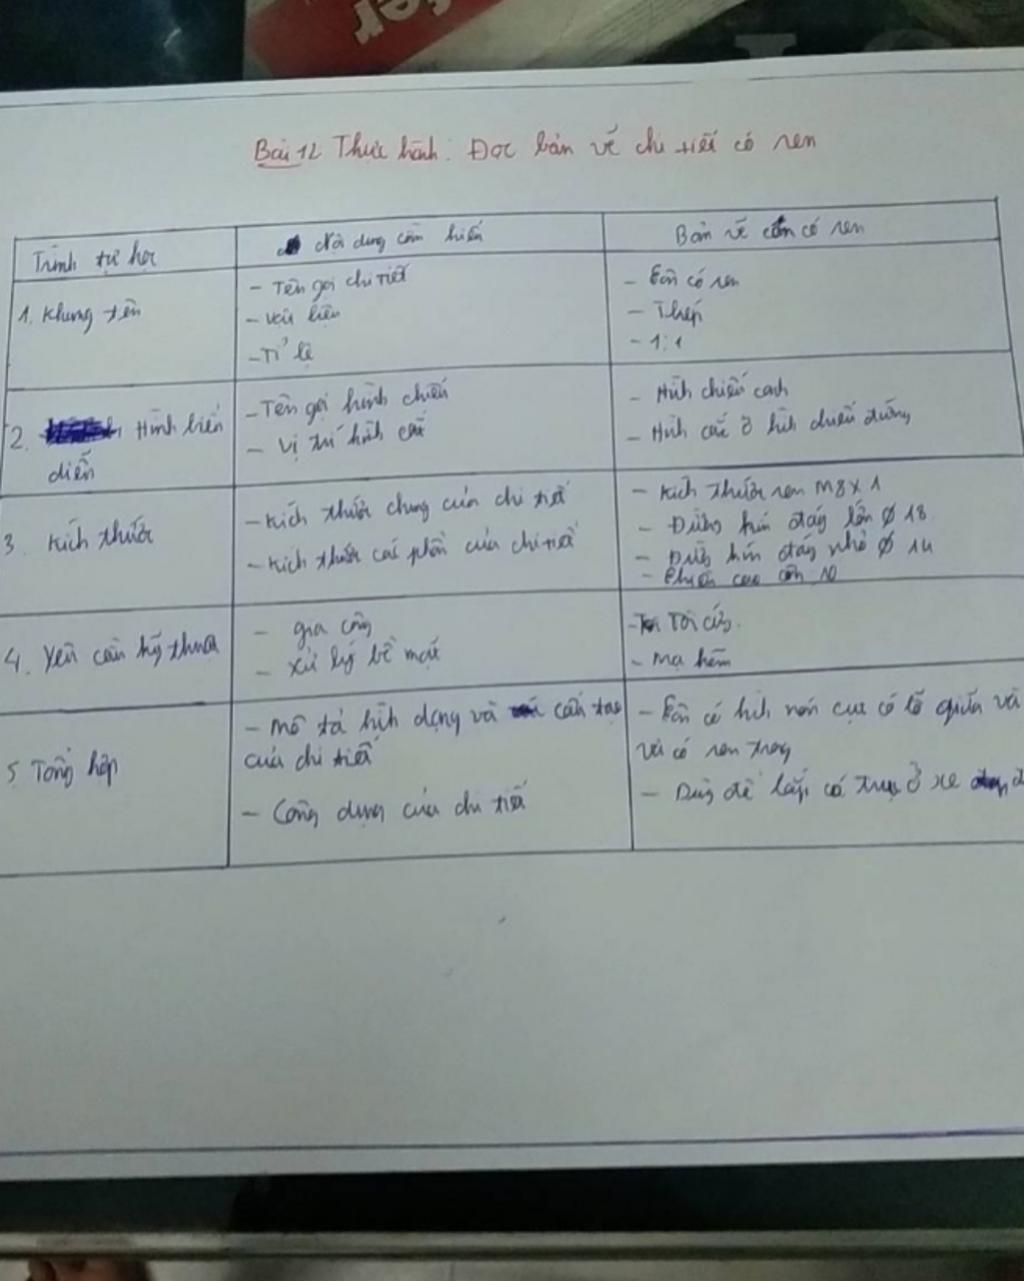 Bài 12 Thực hành: Đọc bản vẽ chi tiết có ren
Trình tự học
Nội dung cần hiểu
Bản vẽ côn có ren
1. Khung tên
- Tên gọi chi tiết
- Vật liệu
- Tỉ lệ
- Côn có ren
- Thép
- 1:1
2. Hình biểu
diễn
- Tên gọi hình chiếu
- Vị trí hình cắt
- Hình chiếu cạnh
- Hình cắt ở hình chiếu đứng
3. Kích thước
- Kích thước chung của chi tiết
- Kích thước các phần của chi tiết
- Kích thước ren M8x1
- Đường kính đáy lớn ø 18
- Đường kính đáy nhỏ ø 14
- Chiều cao côn 10
4. Yêu cầu kỹ thuật
- gia công
- Xử lý bề mặt
- Tôi cứng.
- Mạ kẽm
5. Tổng hợp
- Mô tả hình dạng và cấu tạo
của chi tiết
- Công dụng của chi tiết
- Côn có hình nón cụt có lỗ giữa và
và có ren trong
- Dùng để lắp có trục ở xe